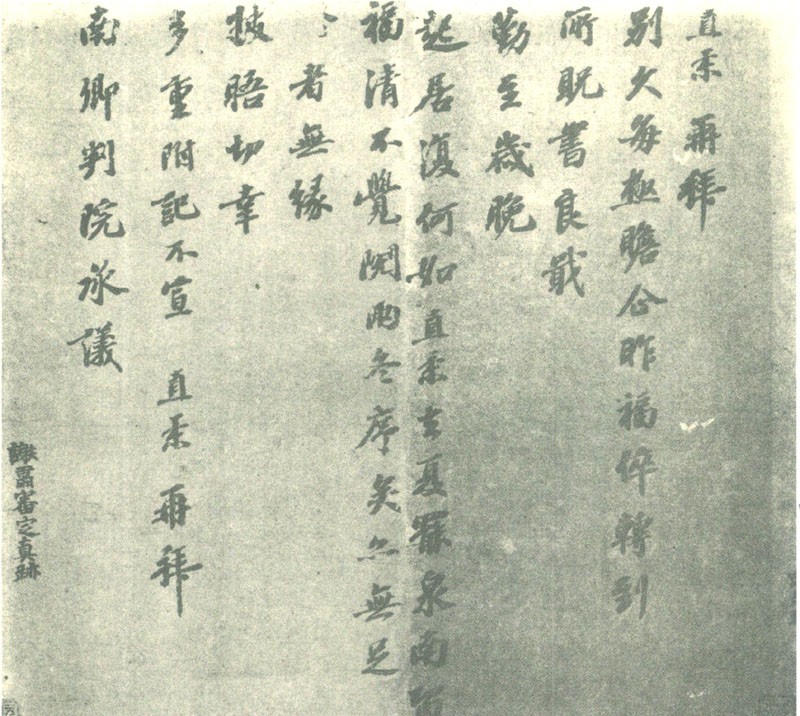 直柔 再拜
別久每極瞻企昨福倅轉到
所貺書良戢
勤至歲晚
起居復何如直柔去夏罷泉南
福清不覺閱兩冬序矣亦無足
者無緣
披晤切幸
多重附記不宣 直柔 再拜
南卿判院承議
謝肅審定真跡